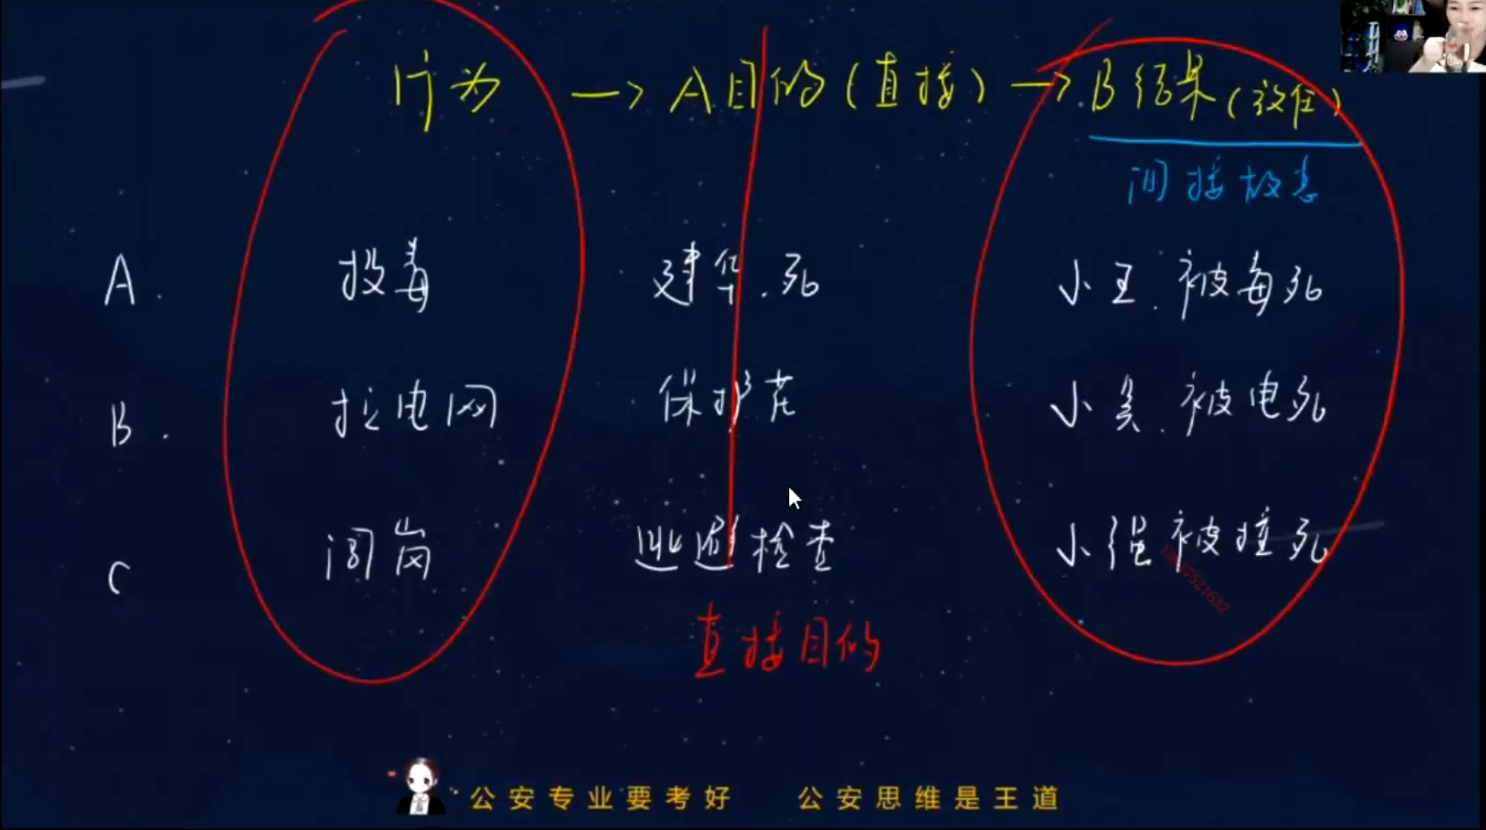 行为 → A目的(直接) → B结果(放任)
间接故意
A. 投毒 建华.死 小王.被毒死
B. 拉电网 保护花 小吴.被电死
C 闯岗 逃避检查 小强被撞死
直接目的
公安专业要考好 公安思维是王道